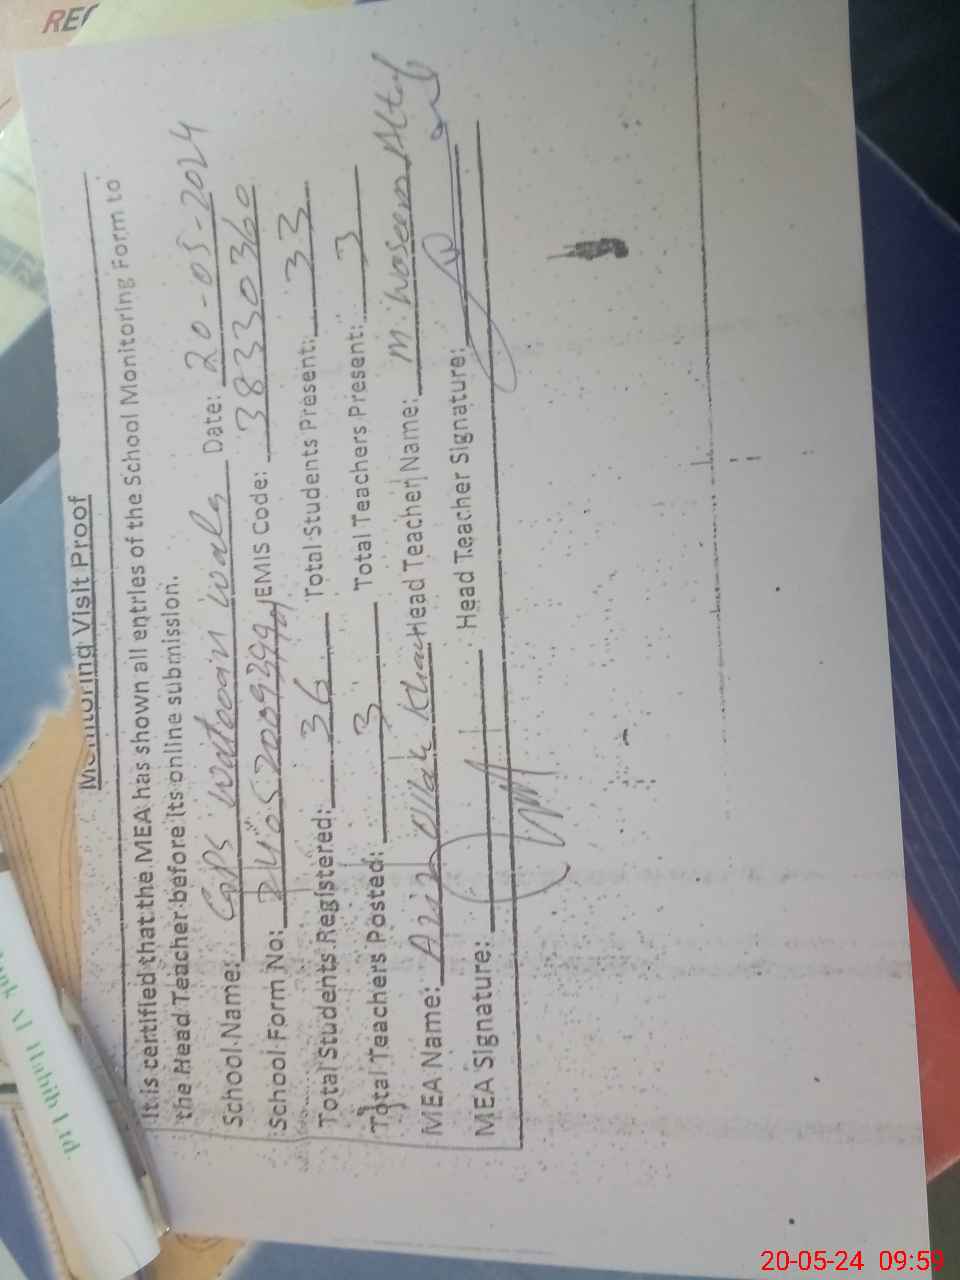 REG
Monitoring Visit Proof
It is certified that the MEA has shown all entries of the School Monitoring Form to
the Head Teacher before its online submission.
School Name: GPS wala Date: 20-05-2024
School Form No: EMIS Code: 38330360
Total Students Registered: 36 Total Students Present: 33
Total Teachers Posted: 3 Total Teachers Present: 3
MEA Name: Aziz Ullah Khan Head Teacher Name: M. Waseem Altaf
MEA Signature: Head Teacher Signature:
Habib
20-05-24 09:59